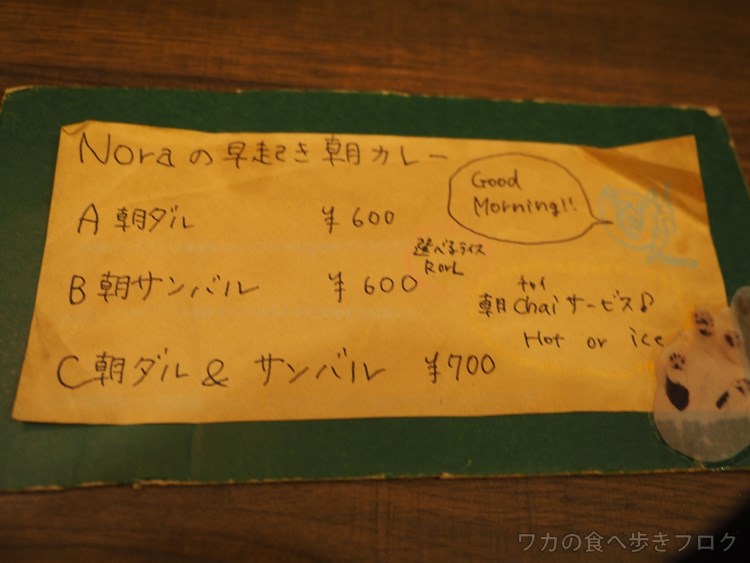 Noraの早起き朝カレー
Good
Morning!!
A 朝ダル ¥600
選べるライス
R or L
B 朝サンバル ¥600
チャイ
朝Chaiサービス♪
Hot or ice
C 朝ダル & サンバル ¥700
ワカの食べ歩きブログ